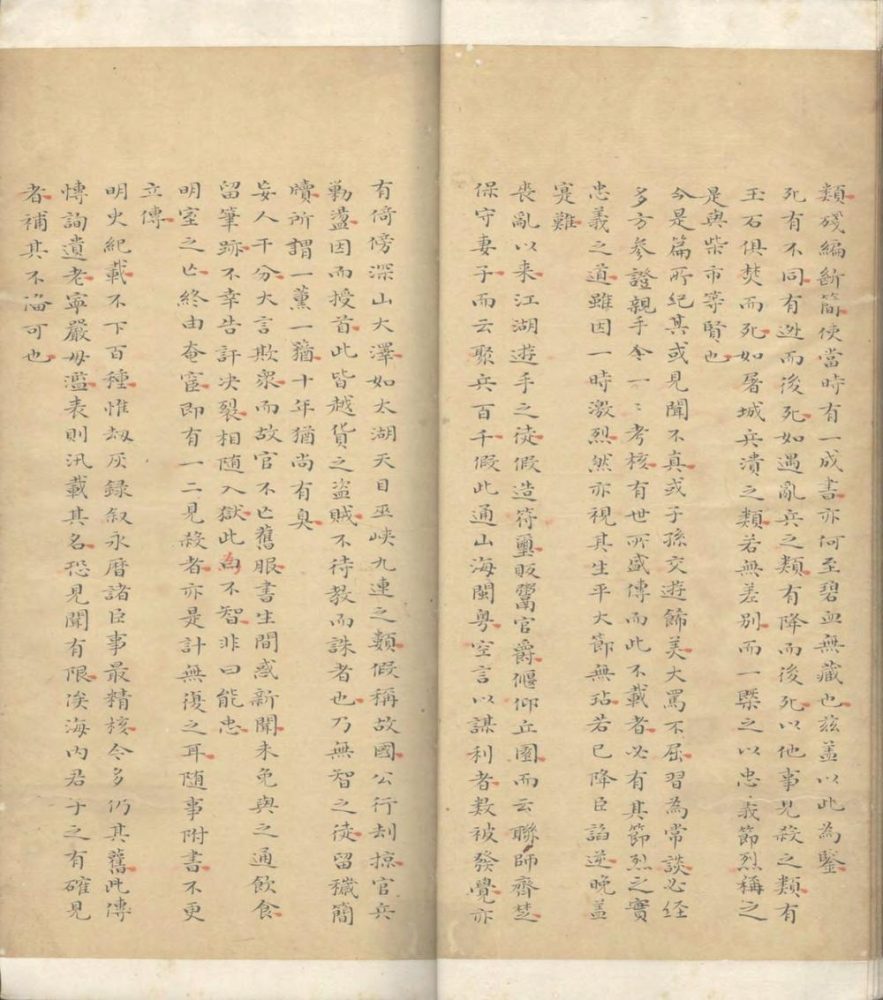 類殘編斷簡使當時有一成書亦何至碧血無藏也玆盖以此為鑒
死有不同有逊而後死如遇亂兵之類有降而後死以他事見殺之類有
玉石俱焚而死如屠城兵潰之類若無差别而一槩之以忠義節烈稱之
是與柴市等賢也
今是篇所纪其或見聞不真或子孫交遊飾美大罵不屈習為常談必经
多方参證親手仝一〻考核有世所盛傳而此不載者必有其節烈之實
忠義之道雖因一時激烈然亦視其生平大節無玷若已降臣諂逆晚盖
寔難
丧亂以来江湖遊手之徒假造符璽販鬻官爵偃仰丘園而云聯師齊楚
保守妻子而云聚兵百千假此通山海閩粤空言以謀利者数被發覺亦
有倚傍深山大澤如太湖天目巫峽九連之類假稱故國公行刦掠官兵
勦盪因而授首此皆越貨之盜賊不待教而誅者也乃無智之徒留穢簡
牘所謂一薰一猶十年猶尚有臭
妄人干分大言欺衆而故官不亡舊服書生間惑新聞未免與之通飲食
留筆跡不幸告訐决裂相随入獄此為不智非曰能忠
明室之亡終由奄宦即有一二見殺者亦是計無復之耳随事附書不更
立傳
明火紀載不下百種惟刼灰録叙永曆諸臣事最精核今多仍其舊此傳
博詢遺老寧嚴毋濫表則汎載其名恐見聞有限俟海内君子之有確見
者補其不备可也